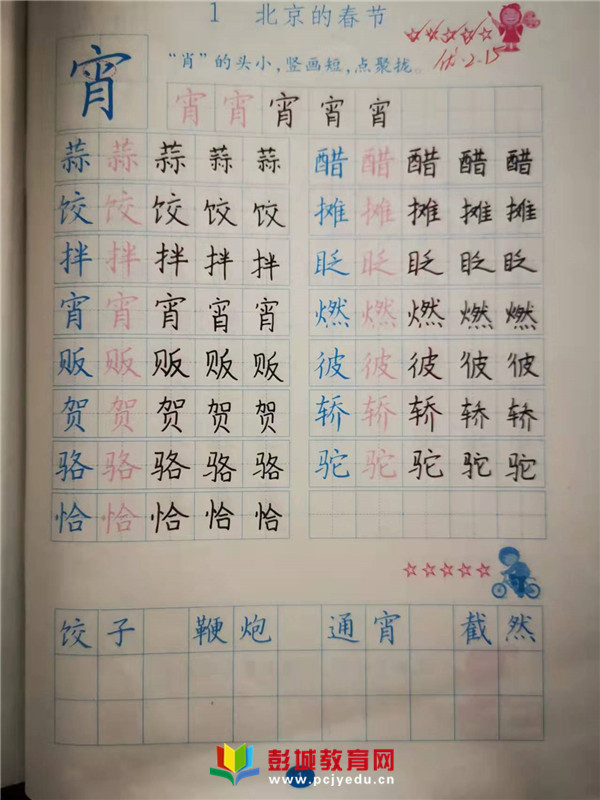 1 北京的春节
优.2.15
宵 “肖”的头小,竖画短,点聚拢。
宵宵宵宵宵
蒜蒜蒜蒜蒜 醋醋醋醋醋
饺饺饺饺饺 摊摊摊摊摊
拌拌拌拌拌 眨眨眨眨眨
宵宵宵宵宵 燃燃燃燃燃
贩贩贩贩贩 彼彼彼彼彼
贺贺贺贺贺 轿轿轿轿轿
骆骆骆骆骆 驼驼驼驼驼
恰恰恰恰恰
饺子 鞭炮 通宵 截然
彭城教育网
www.pcjyedu.cn